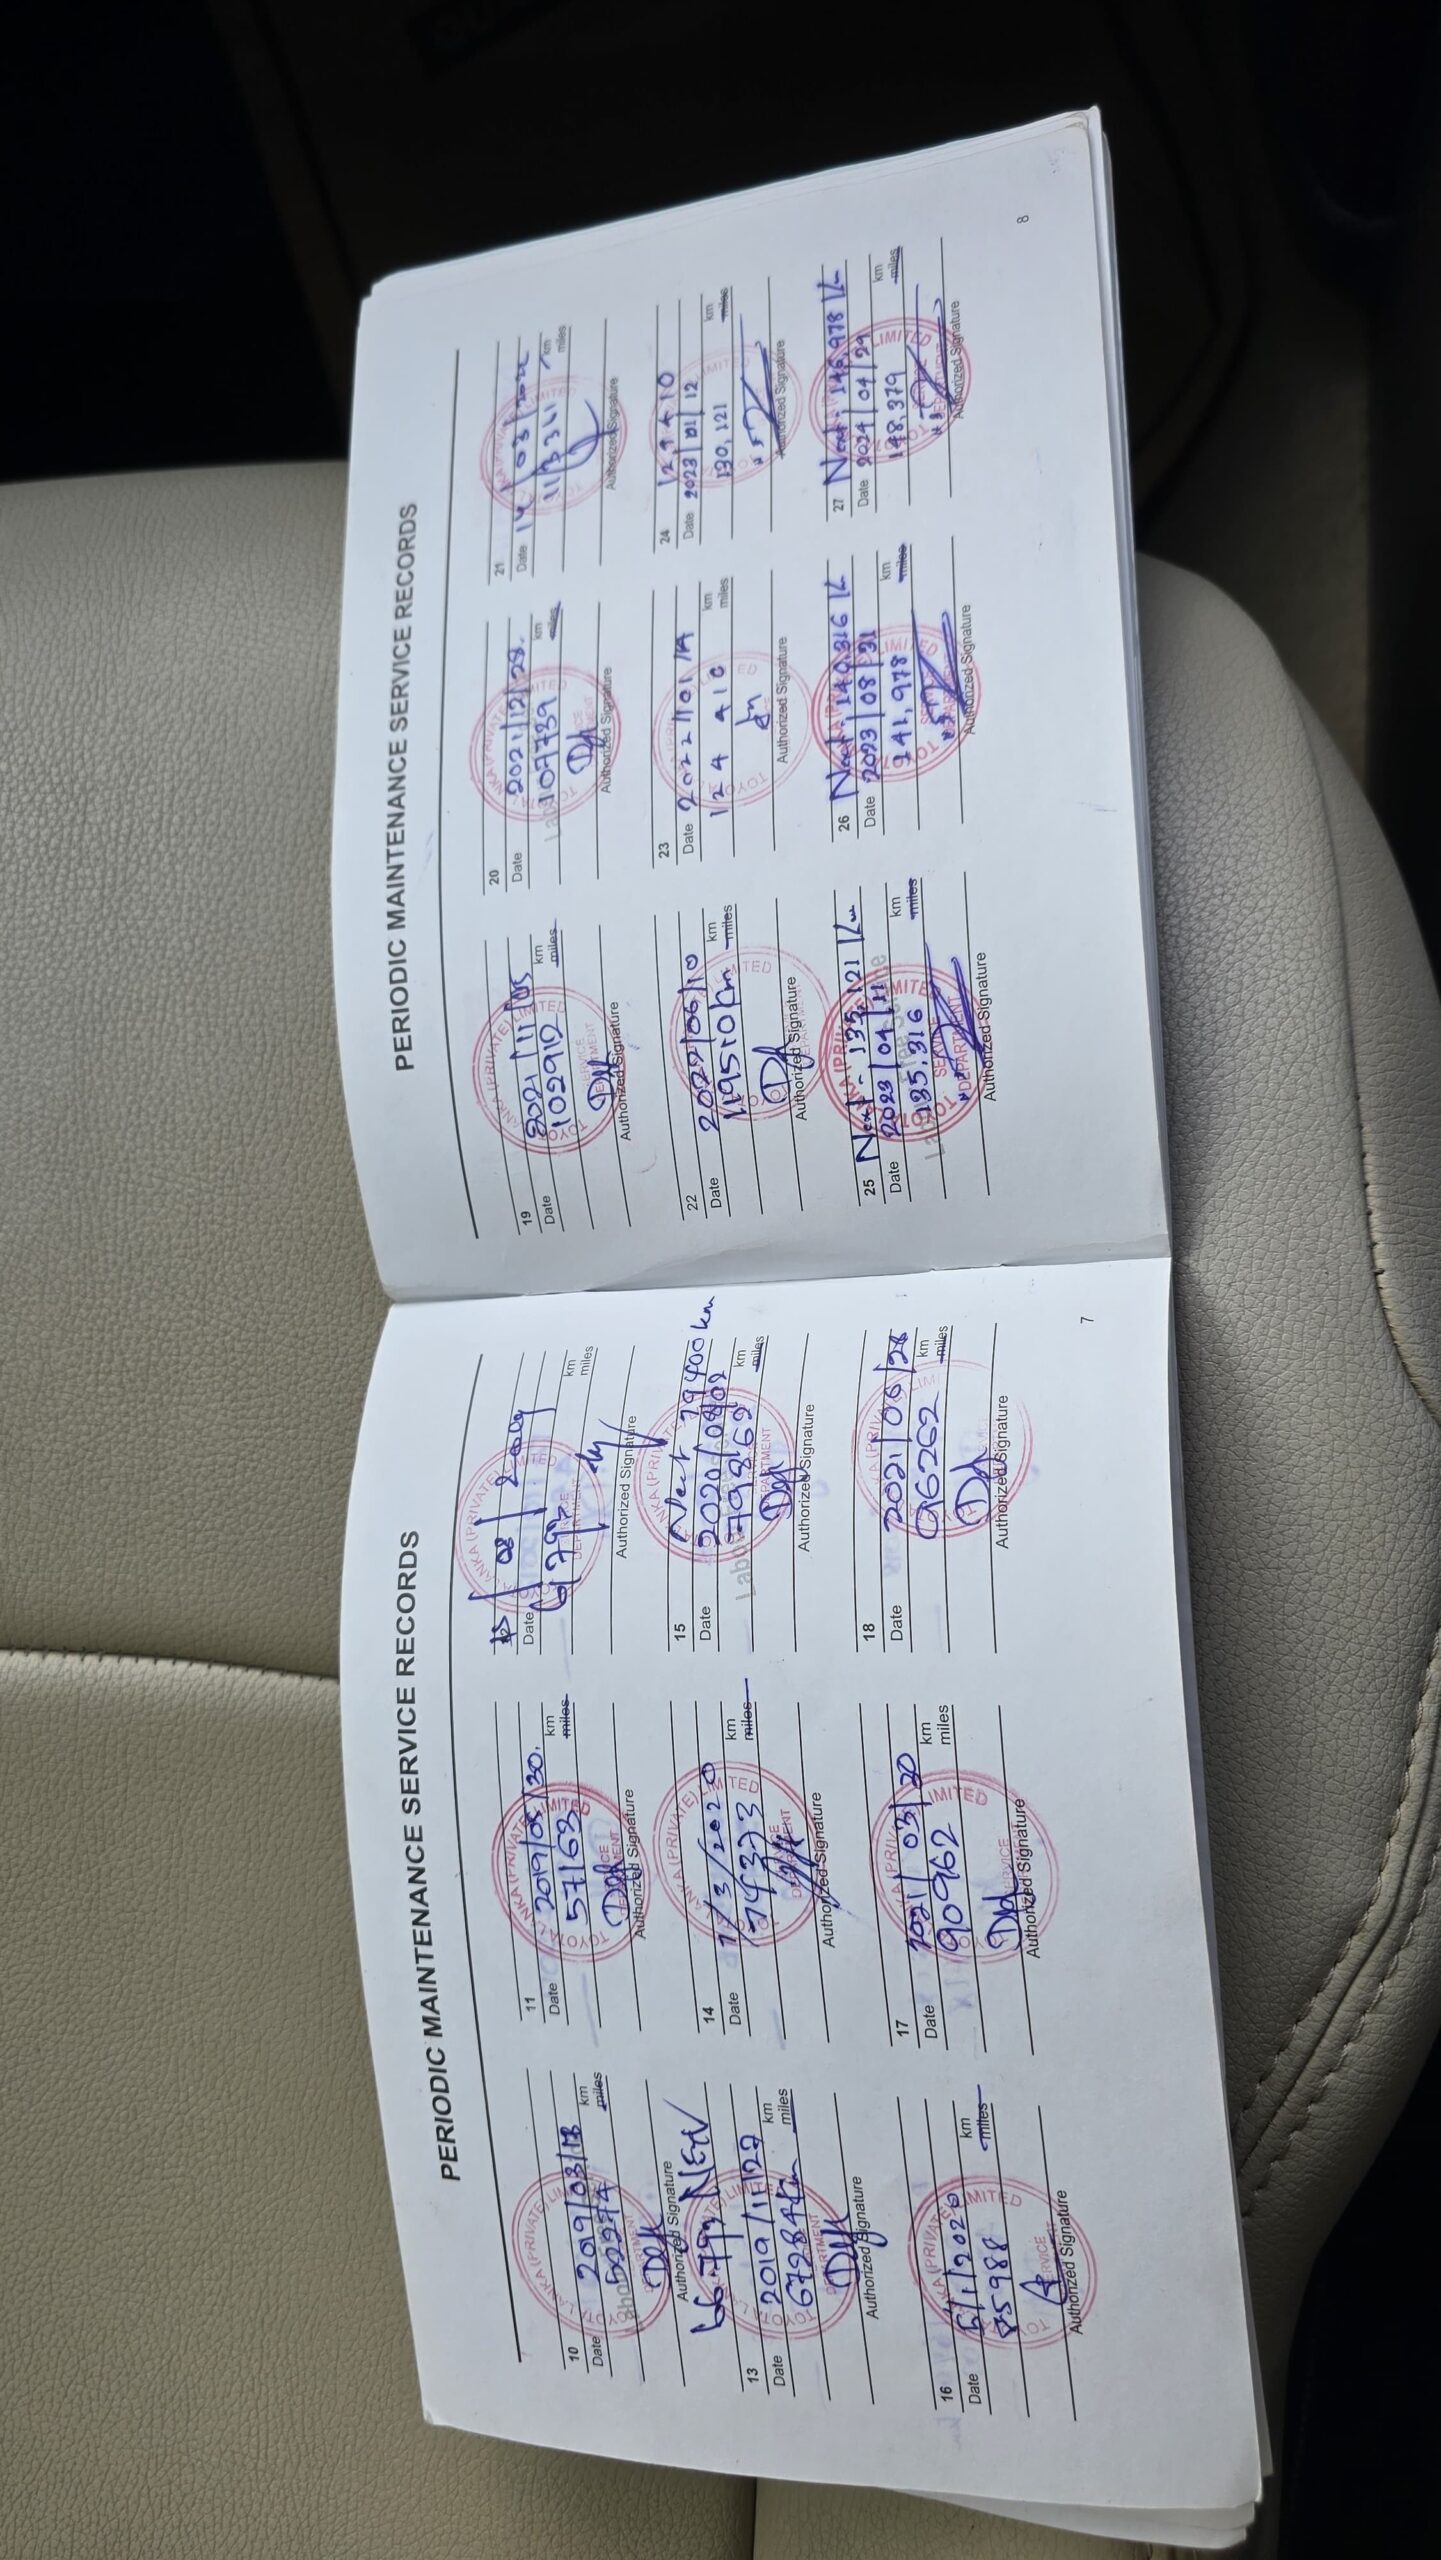 PERIODIC MAINTENANCE SERVICE RECORDS
10
Date 2019/03/13
52274 km
miles
Authorized Signature
11
Date 2019/05/30.
57163 km
miles
Authorized Signature
12
Date 08
km
miles
Authorized Signature
66793 NEW
13
Date 2019/11/27
67284 km km
miles
Authorized Signature
14
Date 7/3/2020
74373 km
miles
Authorized Signature
15 Next 79400 km
Date 2020/08/02
79862 km
miles
Authorized Signature
16
Date 5/1/2020
85988 km
miles
Authorized Signature
17
Date 2021/03/30
90962 km
miles
Authorized Signature
18
Date 2021/06/28
96262 km
miles
Authorized Signature
7
PERIODIC MAINTENANCE SERVICE RECORDS
19
Date 2021/11/05
102912 km
miles
Authorized Signature
20
Date 2021/12/28.
107739 km
miles
Authorized Signature
21
Date 14/03/2022
113341 km
miles
Authorized Signature
22
Date 2022/06/10
119510 km km
miles
Authorized Signature
23
Date 2022/101
124410 km
miles
Authorized Signature
24 129410
Date 2023/01/12
130,121 km
miles
Authorized Signature
25 Next - 135,121 Km
Date 2023/04/11
135,316 km
miles
Authorized Signature
26 Next - 140,316 K
Date 2023/08/31
141,978 km
miles
Authorized Signature
27 Next - 146,978 K
Date 2024/04/29
148,379 km
miles
Authorized Signature
8